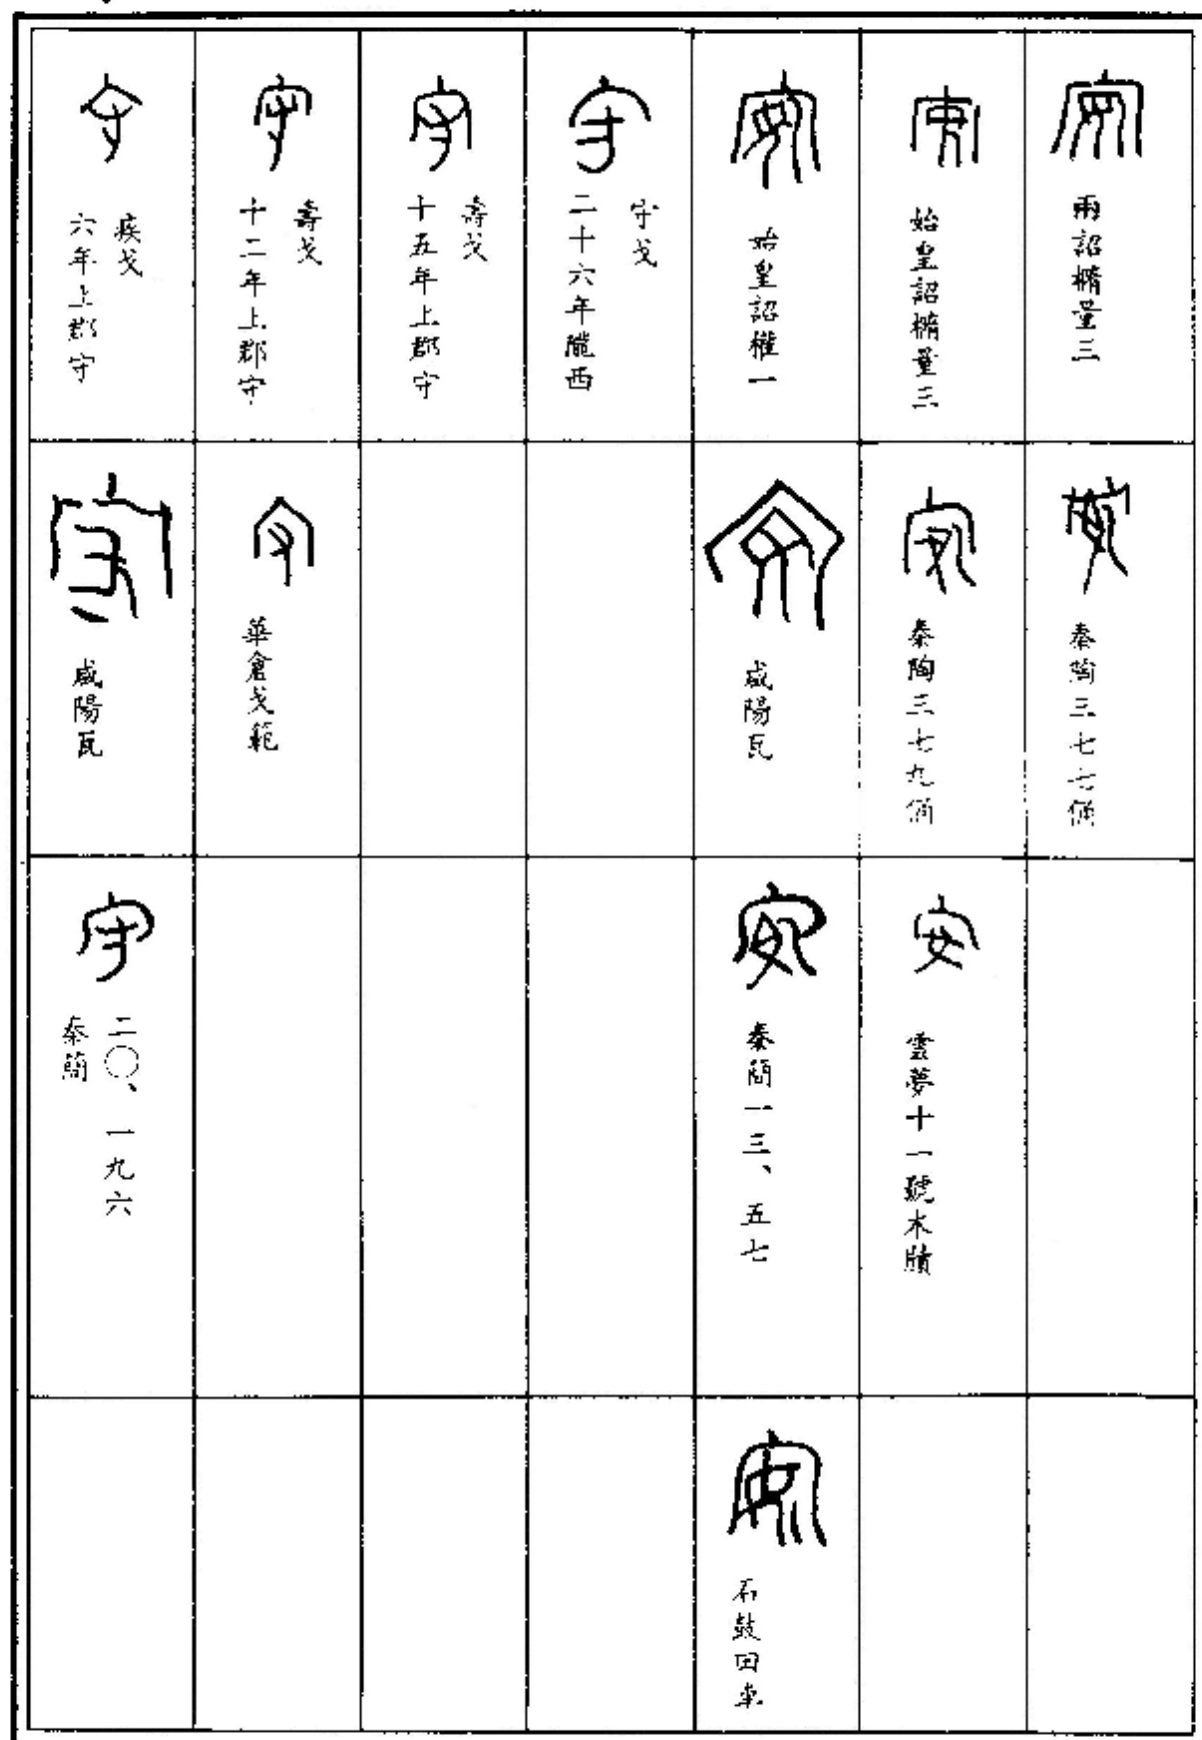 安
兩詔橢量三
安
始皇詔橢量三
安
始皇詔權一
守
二十六年隴西
守戈
守
十五年上郡守
壽戈
守
十二年上郡守
壽戈
守
六年上郡守
疾戈
安
秦陶三七七俑
安
秦陶三七九俑
安
咸陽瓦
守
華倉戈範
守
咸陽瓦
安
雲夢十一號木牘
安
秦簡一三、五七
守
秦簡
二〇、一九六
安
石鼓田車